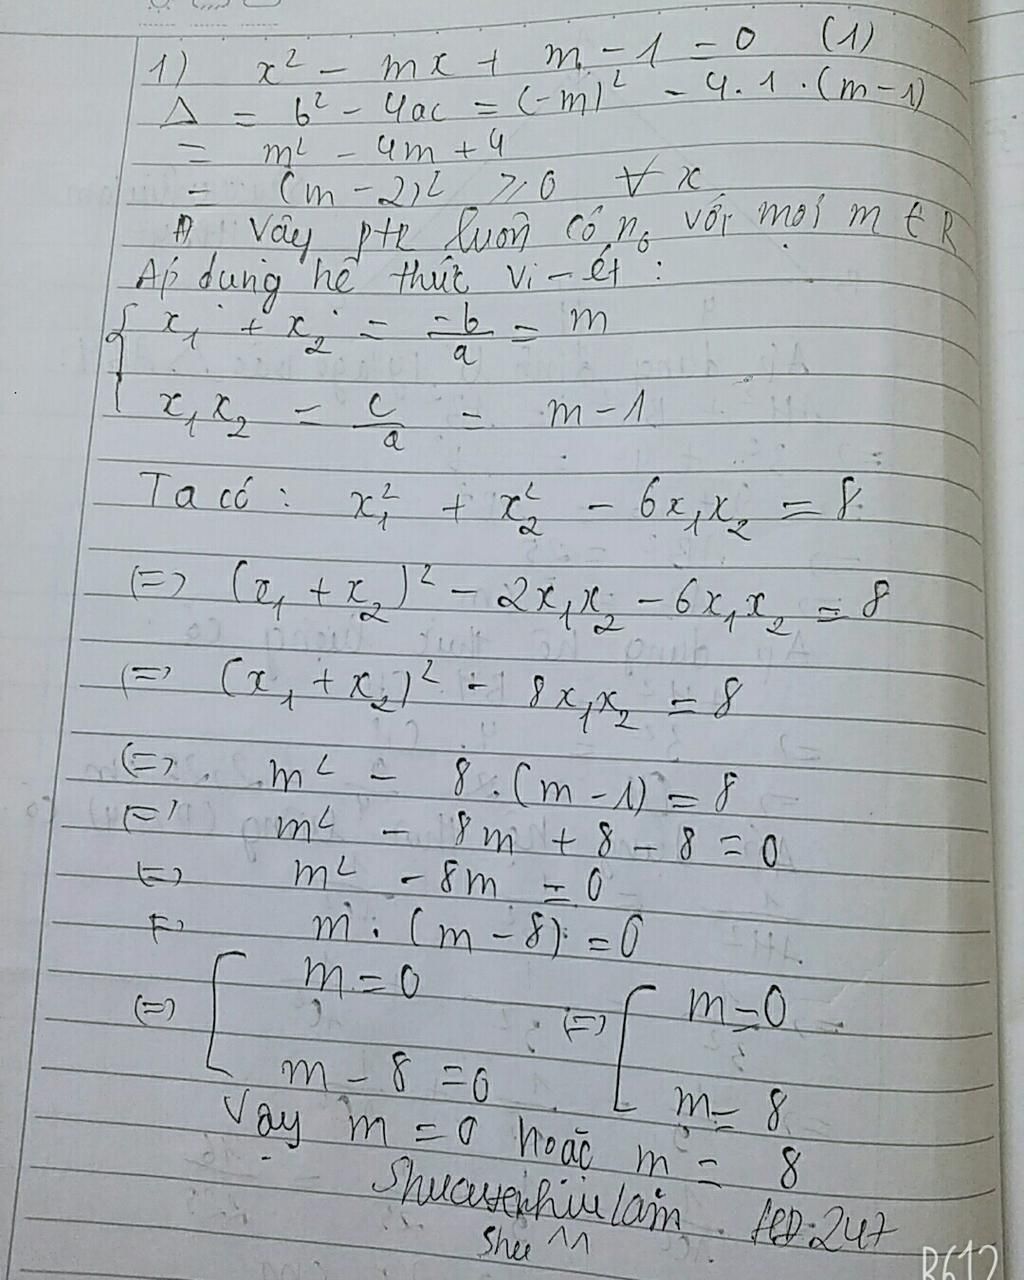 1) x² - mx + m - 1 = 0 (1)
Δ = b² - 4ac = (-m)² - 4.1.(m-1)
= m² - 4m + 4
= (m-2)² ≥ 0 ∀ x
Vậy ptr luôn có n₀ với mọi m ∈ R
Áp dụng hệ thức Vi-ét:
{ x₁ + x₂ = -b/a = m
x₁x₂ = c/a = m - 1
Ta có: x₁² + x₂² - 6x₁x₂ = 8
(=) (x₁ + x₂)² - 2x₁x₂ - 6x₁x₂ = 8
(=) (x₁ + x₂)² - 8x₁x₂ = 8
(=) m² - 8.(m-1) = 8
(=) m² - 8m + 8 - 8 = 0
(=) m² - 8m = 0
(=) m.(m-8) = 0
(=) [ m = 0 (=) [ m = 0
m - 8 = 0 m = 8
Vậy m = 0 hoặc m = 8
247
Shu 11
B612